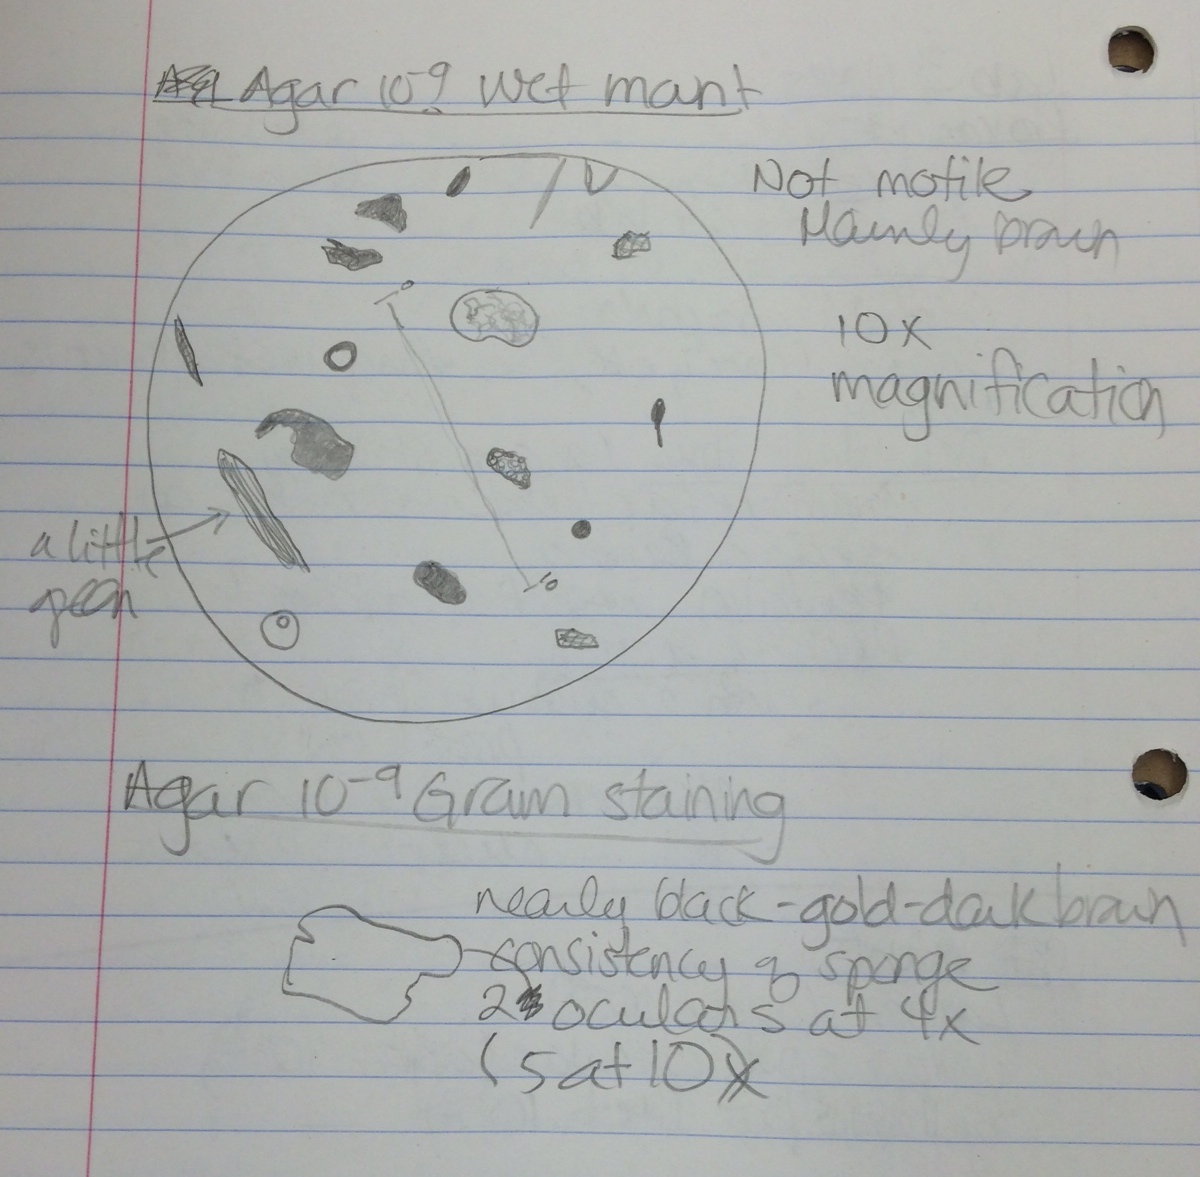 Agar 10-9 wet mant
Not motile
Mainly brown
10x
magnification
a little
green
Agar 10-9 Gram staining
nearly black-gold-dark brown
consistency of sponge
2 oculars at 4x
(5 at 10)x